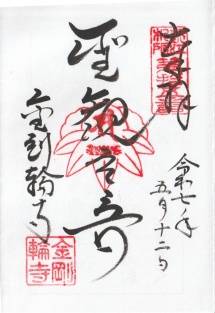 奉拝
令和七年
五月十二日
聖観世音
金剛輪寺
金剛
輪寺